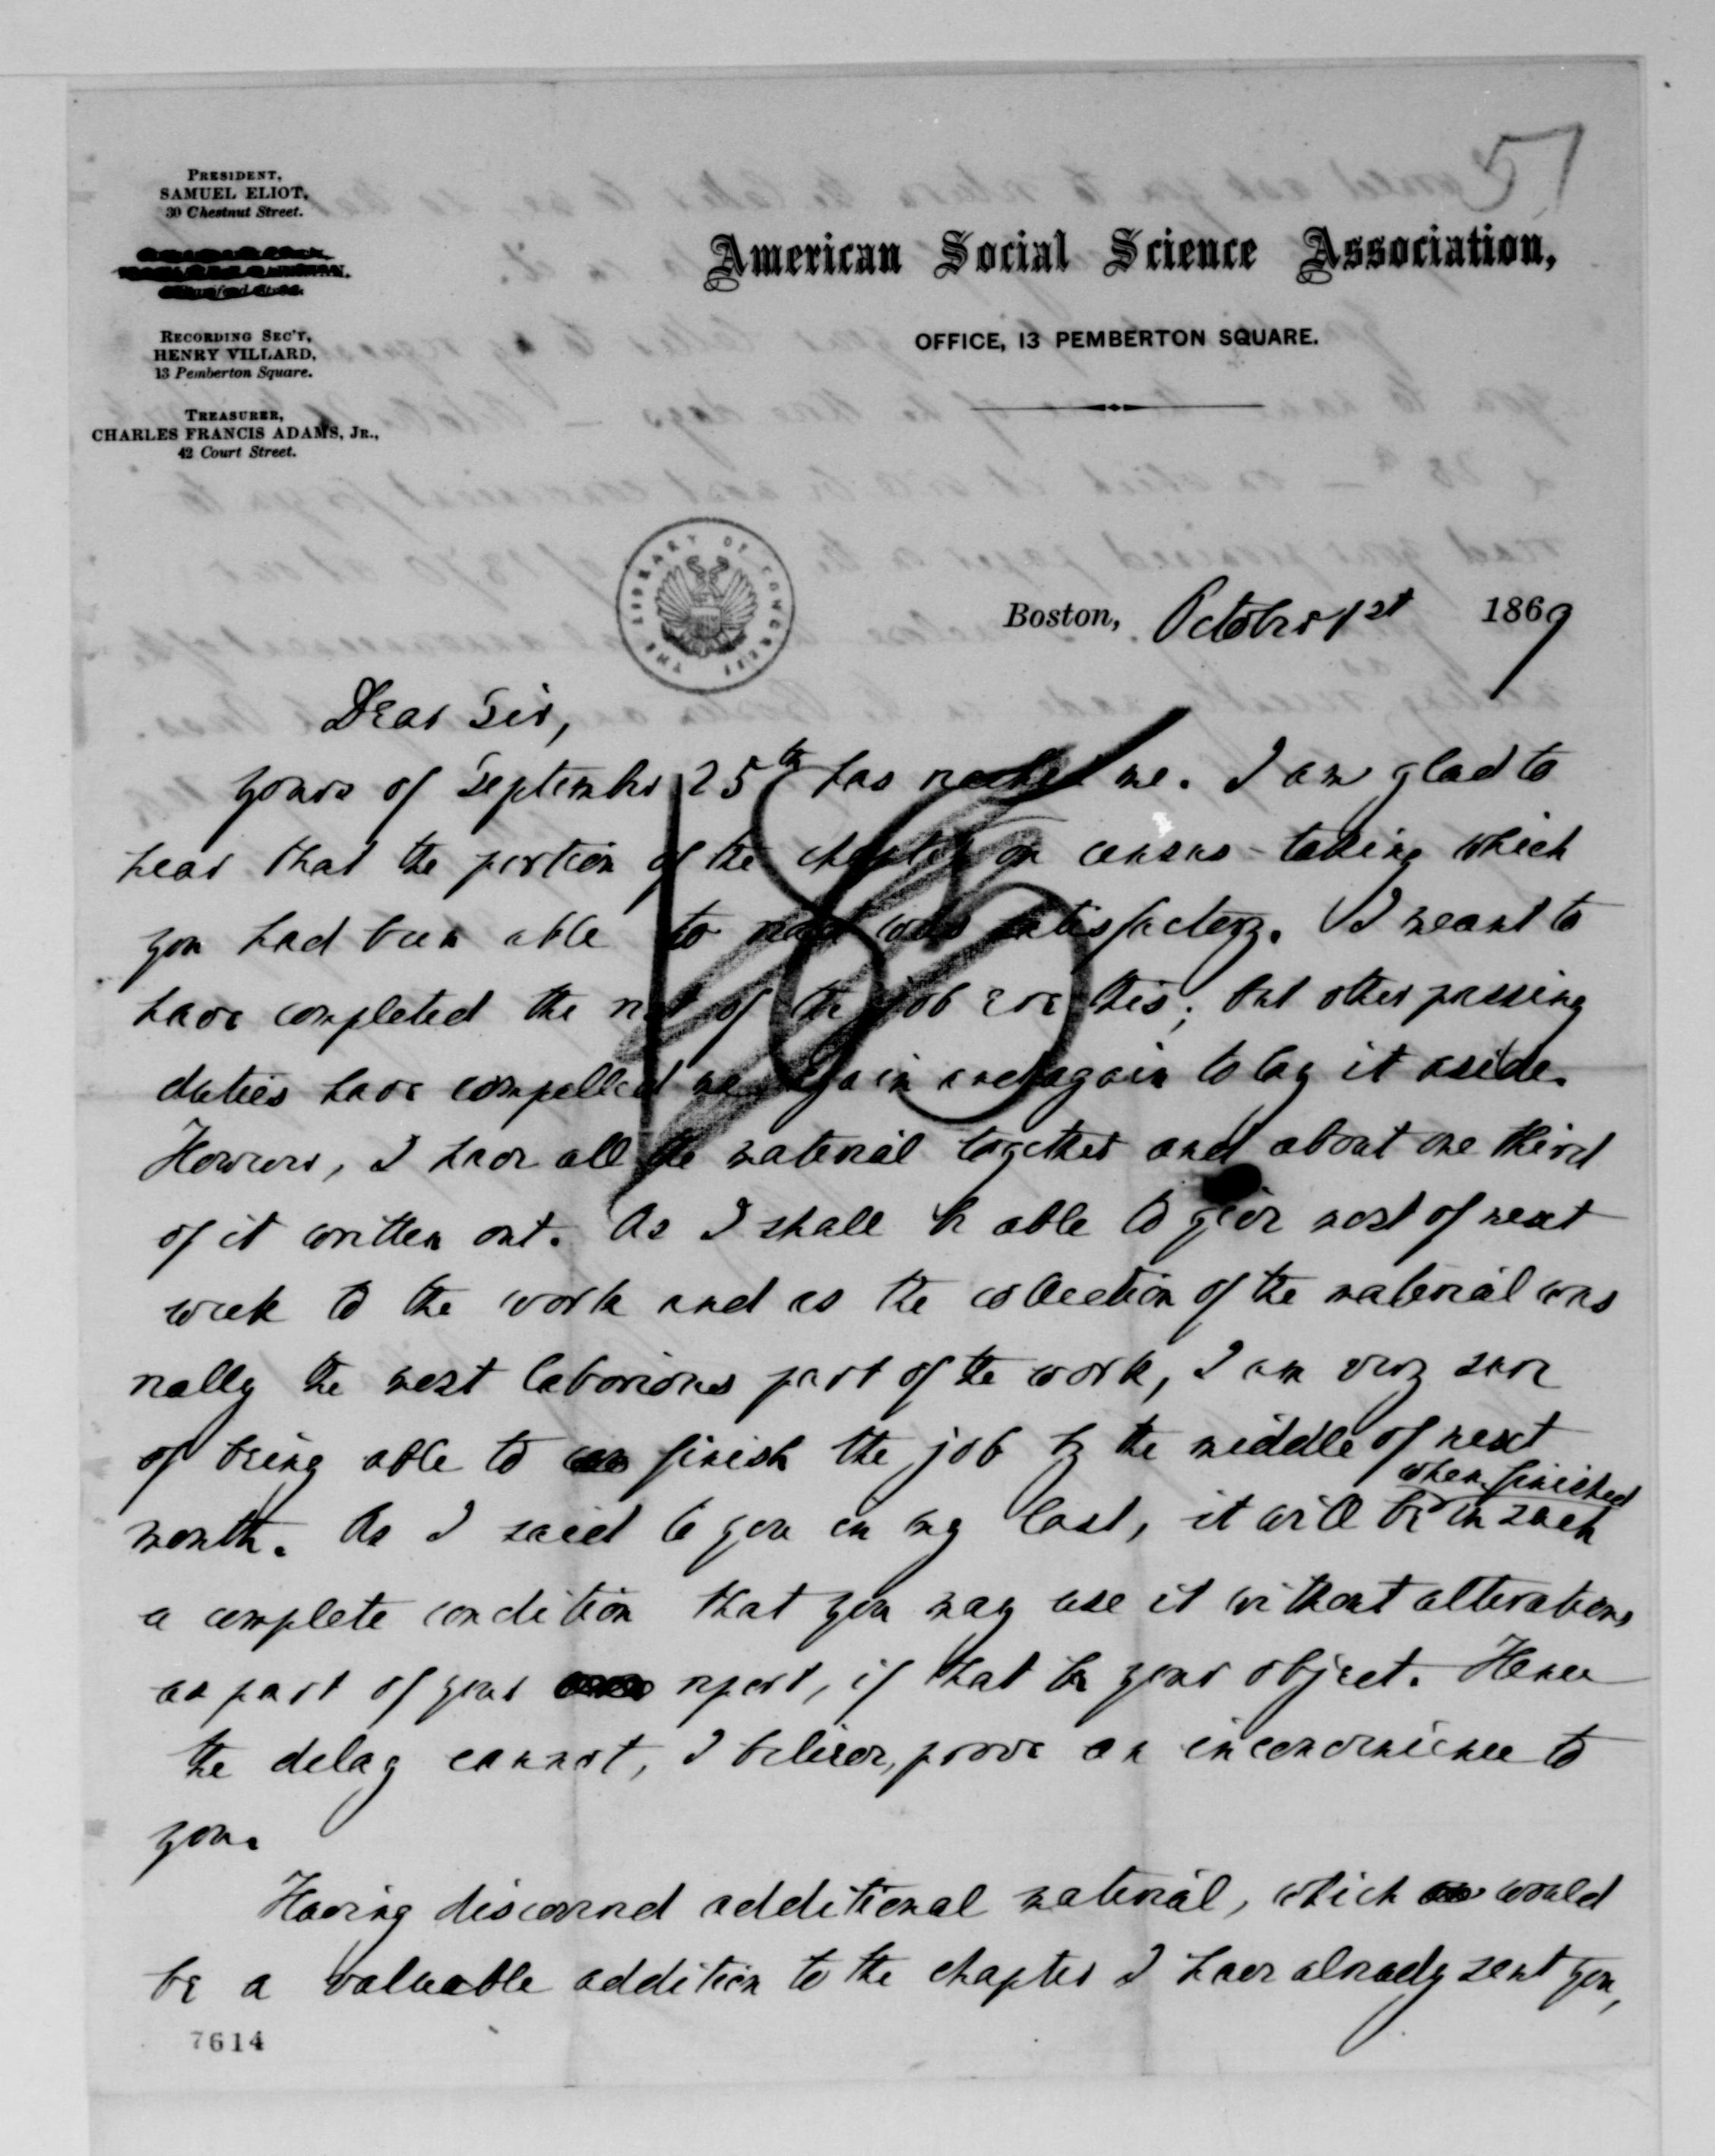 57
PRESIDENT,
SAMUEL ELIOT,
30 Chestnut Street.
RECORDING SEC'Y,
HENRY VILLARD,
13 Pemberton Square.
TREASURER,
CHARLES FRANCIS ADAMS, JR.,
42 Court Street.
American Social Science Association,
OFFICE, 13 PEMBERTON SQUARE.
THE LIBRARY OF CONGRESS
Boston, October 1st 1869
Dear Sir,
Yours of September 25th has reached me. I am glad to
hear that the portion of the chapter on census-taking which
you had been able to read was satisfactory. I meant to
have completed the rest of the job ere this; but other pressing
duties have compelled me again and again to lay it aside.
However, I have all the material together and about one third
of it written out. As I shall be able to give most of next
week to the work and as the collection of the material was
really the most laborious part of the work, I am very sure
of being able to finish the job by the middle of next
month. As I said to you in my last, it will be when finished in such
a complete condition that you may use it without alterations
as part of your report, if that be your object. Hence
the delay cannot, I believe, prove an inconvenience to
you.
Having discovered additional material, which would
be a valuable addition to the chapter I have already sent you,
7614